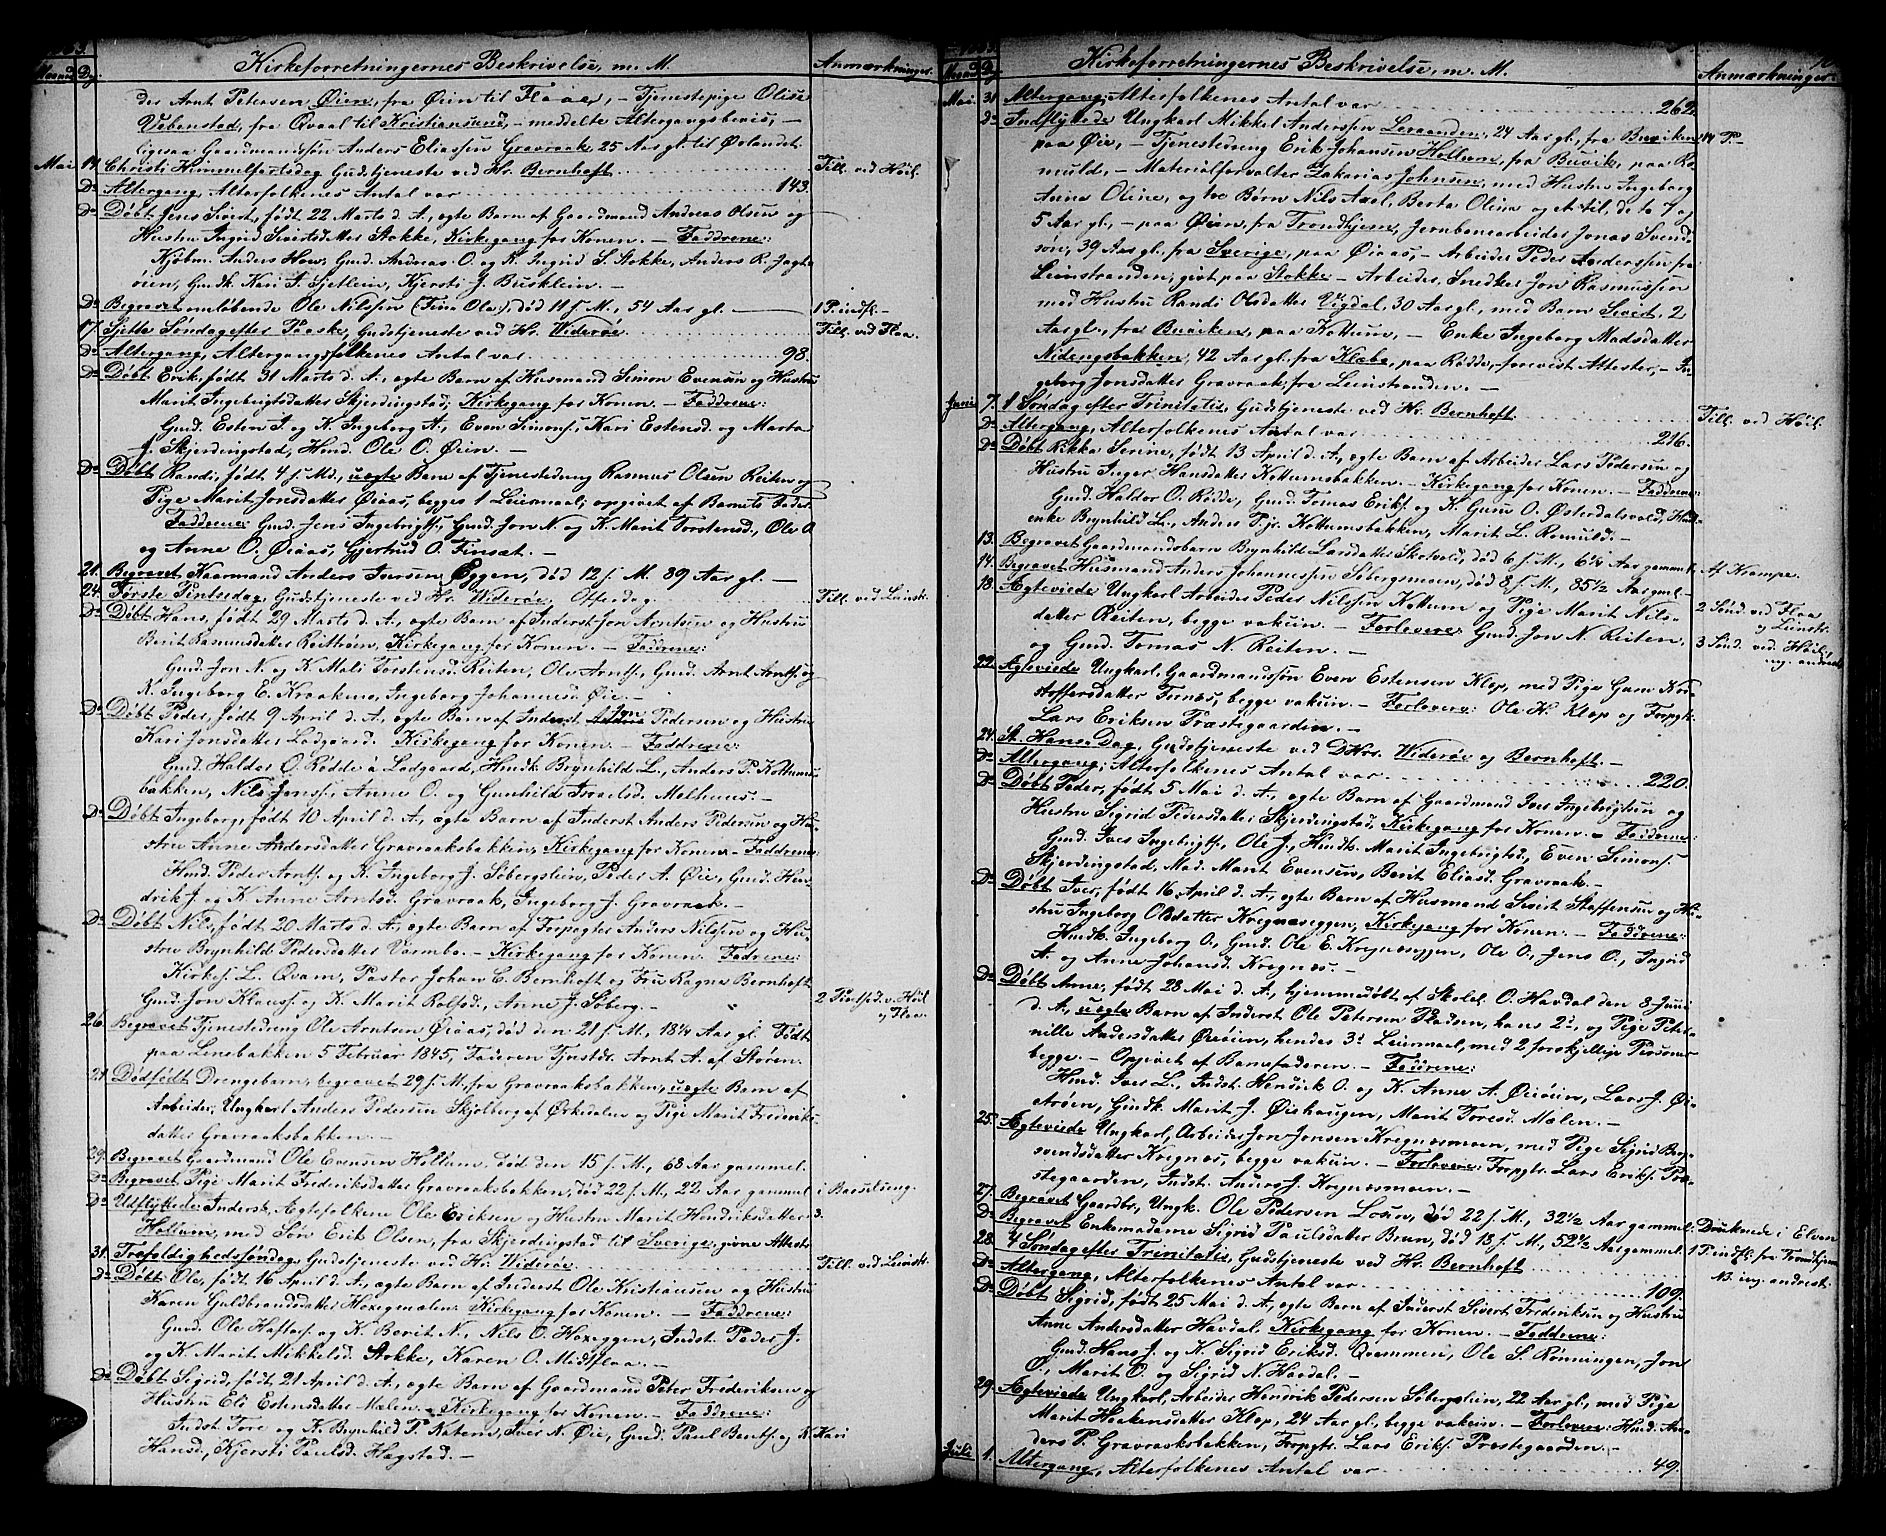 Kirkeforretningernes Beskrivelse, m. M. Anmærkninger.
Maaned Dg.
der Arnt Petersen Øien, fra Øien til Flaae, – Tjenestepige Olise
Vebenstad, fra Qvaal til Kristiansund, – meddelte Altergangsbevis, –
ligesaa Gaardmandssøn Anders Eliassen Gravraak, 25 Aar gl. til Ørlandet.
Mai 14. Christi Himmelfartsdag Gudstjeneste ved Hr. Bernhoft Till. ved Höil.
Do Altergang, Alterfolkenes Antal var 143.
Do Döbt Jens Sivert, født 22 Marts d. A., ægte Barn af Gaardmand Andreas Olsen og
Hustru Ingrid Sivertsdatter Stokke, Kirkegang for Konen. – Faddrene:
Kjöbm. Anders How, Gmd. Andreas O. og K. Ingrid S. Stokke, Anders R. Jagt-
öien, Gmdk. Kari J. Sjetlein, Kjersti J. Busklein. –
Do Begravet omløbende Ole Nilsen (Fina Ola), død 11 s. M., 54 Aar gl. – 1 P. indfl. –
17. Sjette Söndag efter Paaske, Gudstjeneste ved Hr. Wideröe. Till. ved Flaa.
Do Altergang, Altergangsfolkenes Antal var 98.
Do Döbt Erik, født 31 Marts d. A., ægte Barn af Husmand Simon Evensen og Hustru
Marit Ingebrigtsdatter Skjerdingstad, Kirkegang for Konen. – Faddrene:
Gmd. Esten I. og K. Ingeborg A., Even Simons., Kari Estensd. og Marta
J. Skjerdingstad, Hmd. Ole O. Øien. –
Do Döbt Randi, født 4 s. Md., uægte Barn af Tjenestedreng Rasmus Olsen Reiten og
Pige Marit Jonsdatter Øiaas, begges 1 Leiermaal; opgivet af Barnets Fader.
Faddrene: Gmd. Jens Ingebrigts., Gmd. Jon N. og K. Marit Torstensd., Ole O.
og Anne O. Øiaas, Gjertrud O. Finsæt. –
21. Begravet Kaarmand Anders Iversen Eggen, død 12 s. M. 89 Aar gl. –
24. Første Pintsedag, Gudstjeneste ved Hr. Wideröe, Offerdag. Till. ved Leinstr.
Do Döbt Hans, født 29 Marts d. A., ægte Barn af Inderst Jon Arntsen og Hustru
Berit Rasmusdatter Reittrøen, Kirkegang for Konen. – Faddrene:
Gmd. Jon N. og K. Mali Torstensd. Reiten, Ole Arnts., Gmd. Arnt Arnts. og
K. Ingeborg E. Kraakmo, Ingeborg Johannesd. Øie. –
Do Döbt Peder, født 9 April d. A., ægte Barn af Inderst Jon Pedersen og Hustru
Kari Jonsdatter Lodgaard. Kirkegang for Konen. – Faddrene:
Gmd. Haldor O. Rödde á Lodgaard, Hmdk. Brynhild L., Anders P. Kottums-
bakken, Nils Jons., Anne O. og Gunhild Israelsd. Melhuus. –
Do Döbt Ingeborg, født 10 April d. A., ægte Barn af Inderst Anders Pedersen og Hu-
stru Anne Andersdatter Gravraaksbakken, Kirkegang for Konen. – Faddrene:
Hmd. Peder Arnts. og K. Ingeborg J. Söbergslein, Peder A. Øie, Gmd. Hen-
drik J. og K. Anne Arntsd. Gravraak, Ingeborg J. Gravraak. –
Do Döbt Nils, født 20 Marts d. A., ægte Barn af Forpagter Anders Nilsen og Hu-
stru Brynhild Pedersdatter Varmbo. – Kirkegang for Konen. Fadrene:
Kirkes. L. Qvam, Pastor Johan C. Bernhoft og Fru Ragna Bernhoft
Gmd. Jon Klaus. og K. Marit Rolfsd., Anne J. Söberg. – 2 Pintsed. v. Höil
og Flaa.
26. Begravet Tjenestedreng Ole Arntsen Øiaas, død den 21 s. M., 18¼ Aar gl. Født
paa Lenebakken 5 Februar 1845, Faderen Tjenstdr. Arnt A. af Støren.
21. Dödfødt Drengebarn, begravet 29 s. M., fra Gravraaksbakken, uægte Barn af
Arbeider, Ungkarl Anders Pedersen Skjölberg af Orkedalen og Pige Marit Frederiks-
datter Gravraaksbakken. –
29. Begravet Gaardmand Ole Evensen Hollum, død den 15 s. M., 68 Aar gammel.
Do Begravet Pige Marit Frederiksdatter Gravraaksbakken, død 22 s. M., 22 Aar gammel i Barselseng.
Do Udflyttede Inderst, Ægtefolkene Ole Eriksen og Hustru Marit Hendriksdatter 3.
Hollum, med Søn Erik Olsen, fra Skjerdingstad til Sverige, givne Attest.
31. Trefoldighedssøndag, Gudstjeneste ved Hr. Wideröe Till. ved Leinstr.
Do Döbt Ole, født 16 April d. A., ægte Barn af Inderst Ole Kristiansen og Hustru
Karen Guldbrandsdatter Hoxegmelen. Kirkegang for Konen. – Faddrene:
Gmd. Ole Haftors. og K. Berit N., Nils O. Hoxeggen, Indst. Peder J.
og K. Marit Mikkelsd. Stokke, Karen O. Midtflaa. –
Do Döbt Sigrid, født 21 April d. A., ægte Barn af Gaardmand Peter Frederiksen og
Hustru Eli Estensdatter Melen. – Kirkegang for Konen. – Faddrene:
Indst. Tore og K. Brynhild P. Katem, Iver N. Øie, Gmd. Paul Bents. og K. Kari
Hansd., Kjersti Paulsd. Hagstad. –
Kirkeforretningernes Beskrivelse, m. M. Anmærkninger.
Maaned
Mai 31. Altergang, Alterfolkenes Antal var 262.
Do Indflyttede Ungkarl Mikkel Anderssen Leraanden, 24 Aar gl., fra Buviken 14 P. –
paa Øie, – Tjenestedreng Erik Johansen Hollum, fra Buvik, paa Ro-
muld, – Materialforvalter Zakarias Johnsen, med Hustru Ingeborg
Anna Oline, og tre Børn Nils Axel, Berta Olina og et til, de to 7 og
5 Aar gl., – paa Øien, fra Trondhjem, Jernbanearbeider Jonas Svend-
søn, 39 Aar gl. fra Sverige, paa Øiaas, – Arbeider Peder Anderssen fra
Leinstranden, givt paa Stokke – Arbeider, Snedker Jon Rasmussen
med Hustru Randi Olsdatter Vigdal, 30 Aar gl., med Barn Sivert, 2
Aar gl., fra Buviken, paa Kottum, – Enke Ingeborg Madsdatter
Nidengsbakken, 42 Aar gl. fra Klæbo, paa Rödde, forevist Attester, – In-
geborg Jonsdatter Gravraak, fra Leinstranden. –
Juni 7. 1 Söndag efter Trinitatis, Gudstjeneste ved Hr. Bernhoft Till. ved Höil.
Do Altergang, Alterfolkenes Antal var 216.
Do Döbt Rikka Serine, født 13 April d. A., ægte Barn af Arbeider Lars Pedersen og
Hustru Inger Hansdatter Kottumsbakken. – Kirkegang for Konen. – Faddrene:
Gmd. Haldor O. Rödde, Gmd. Tomas Eriks. og K. Guru O. Østerdalsvold, Hmd-
enke Brynhild L., Anders P. jr. Kottumsbakken, Marit L. Romuld. –
13. Begravet Gaardmandsbarn Brynhild Larsdatter Skotvold, død 6 s. M., 6¼ Aar gammel. Af Krampe.
14. Begravet Husmand Anders Johannessen Söbergsmoen, død 8 s. M., 85½ Aar gml. –
18. Ægteviede Ungkarl Arbeider Peder Nilssen Kottum og Pige Marit Nils- 2 Sönd. ved Flaa
datter Reiten, begge vakcin. – Forlovere: Gmd. Jon N. Reiten og Leinstr.
og Gmd. Tomas N. Reiten. – 3 Sönd. ved Höil.
22. Ægteviede Ungkarl, Gaardmandssøn Even Estensen Klop, med Pige Guru Kri- ing. andrest.
stoffersdatter Ternæs, begge vakcin. – Forlovere: Ole H. Klop og Forpgtr.
Lars Eriksen Præstegaarden. –
24. St. Hans Dag, Gudstjeneste ved DHrr. Wideröe og Bernhoft. –
Do Altergang, Alterfolkenes Antal var 220.
Do Döbt Peder, født 5 Mai d. A., ægte Barn af Gaardmand Iver Ingebrigtsen og
Hustru Sigrid Pedersdatter Skjerdingstad, Kirkegang for Konen. – Faddrene:
Gmd. Iver Ingebrigts., Ole J., Hmdk. Marit Ingebrigtsd., Even Simons.
Skjerdingstad, Mad. Marit Evensen, Berit Eliasd. Gravraak. –
Do Döbt Iver, født 16 April d. A., ægte Barn af Husmand Sivert Staffensen og Hu-
stru Ingeborg Olsdatter Kregnæseggen, Kirkegang for Konen. – Faddrene:
Hmdk. Ingeborg O., Gmd. Ole E. Kregnæseggen, Ole O., Jens O., Ingrid
A. og Anne Johansd. Kregnæs. –
Do Döbt Anne, født 28 Mai d. A., hjemmedøbt af Skolel. O. Havdal den 8 Juni
d. A., uægte Barn af Inderst Ole Petersen Pladsen, hans 2d, og Pige Peter-
nille Andersdatter Øieöien, hendes 3d Leiermaal, med 2 forskjellige Personer
begge. – Opgivet af Barnefaderen. – Faddrene:
Hmd. Iver L., Indst. Hendrik O. og K. Anne A. Øieöien, Lars J. Øi-
etrøen, Gmdk. Marit J. Øiehaugen, Marit Toresd. Melen. –
25. Ægteviede Ungkarl, Arbeider Jon Jonsen Kregnæsmoen, med Pige Sigrid Berg-
svendsdatter Kregnæs, begge vakcin. – Forlovere: Forpgtr. Lars Eriks. Præ-
stegaarden, Indst. Anders J. Kregnæsmoen. –
27. Begravet Gaardbr., Ungk. Ole Pedersen Losen, død 22 s. M., 32½ Aar gammel. Druknede i Elven
Do Begravet Enkemadame Sigrid Paulsdatter Brun, død 18 s. M., 52½ Aar gammel. 1 P. indfl. fra Trondhjem
28. 4 Söndag efter Trinitatis, Gudstjeneste ved Hr. Bernhoft NB. ing. andrest.
Do Altergang, Alterfolkenes Antal var 109.
Do Döbt Sigrid, født 25 Mai d. A., ægte Barn af Inderst Sivert Frederiksen og Hustru
Anne Andersdatter Havdal. Kirkegang for Konen. – Faddrene:
Gmd. Hans J. og K. Sigrid Eriksd. Qvammen, Ole S. Rønningen, Jon
O., Marit O. og Sigrid N. Havdal. –
29. Ægteviede Ungkarl, Arbeider Hendrik Pedersen Söbergslein, 22 Aar gl., med Pige
Marit Haakensdatter Klop, 24 Aar gl., begge vakcin. – Forlovere: Hmd. An-
ders P. Gravraaksbakken, Forpgtr. Lars Eriks. Præstegaarden. –
Juli 1. Altergang, Alterfolkenes Antal var 49.